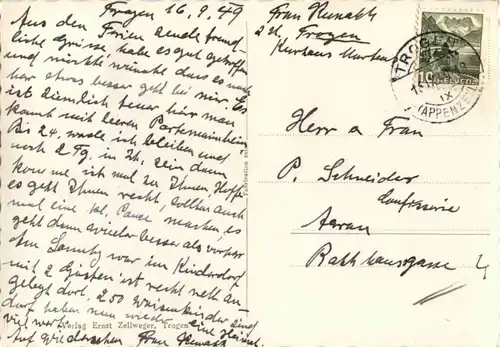 Trogen 16.9.49
Aus den Ferien sende freund-
liche Grüsse, habe es gut getroffen
und möchte wünsche dass es noch
har etwas besser geht bei mir. Es
ist ziemlich teuer hier man
kommt mit leeren Portemonnaie
Bis 24. werde ich bleiben und
noch 2 Tg. in Zh. sein dann
komme ich mal zu Ihnen. Hoffe
es geht Ihnen recht, sollten auch
mal eine kl. Pause machen, es
geht dann wieder besser als vorher
Am Sonntg war im Kinderdorf
mit 2 Gästen ist recht nett an-
gelegt dort, 200 Waisenkinder sind
dort haben nun wieder eine Heimat.
viel wert.
Auf Wiedersehen Frau
Verlag Ernst Zellweger, Trogen
Fabrication
Frau
z. Zt. Trogen
Kurhaus
TROGEN
(APPENZELL)
IX
10
HELVETIA
Herr u Frau
P. Schneider
Confiserie
Aarau
Rathausgasse